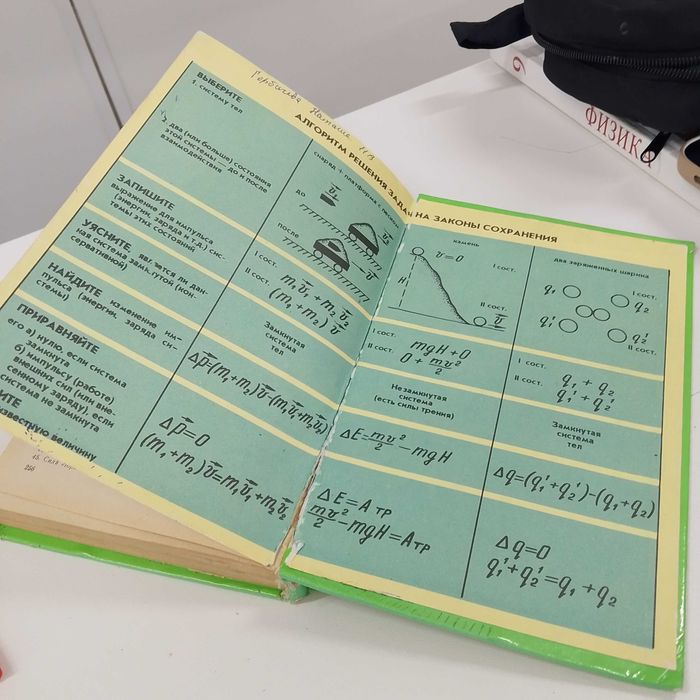 АЛГОРИТМ РЕШЕНИЯ ЗАДАЧ НА ЗАКОНЫ СОХРАНЕНИЯ
ВЫБЕРИТЕ
1. систему тел
2. два (или больше) состояния
этой системы — до и после
взаимодействия
ЗАПИШИТЕ
выражение для импульса
(энергии, заряда и т.д.) сис-
темы этих состояний
УЯСНИТЕ, является ли дан-
ная система замкнутой (кон-
сервативной)
НАЙДИТЕ изменение им-
пульса (энергии, заряда си-
стемы)
ПРИРАВНЯЙТЕ
его а) нулю, если система
замкнута
б) импульсу (работе)
внешних сил (или вне-
сенному заряду), если
система не замкнута
известную величину
256
снаряд + платформа с песком
до
v̄₁
v̄₂
после
v̄
I сост.
II сост.
m₁v̄₁ + m₂v̄₂
(m₁ + m₂) v̄
Замкнутая
система
тел
Δp̄=(m₁+m₂)v̄-(m₁v̄₁+m₂v̄₂)
Δp̄=0
(m₁+m₂)v̄=m₁v̄₁+m₂v̄₂
камень
v=0
H
I сост.
II сост.
v̄
I сост.
II сост.
mgH+0
0+mv²/2
Незамкнутая
система
(есть силы трения)
ΔE=mv²/2-mgH
ΔE=Aтр
mv²/2-mgH=Aтр
два заряженных шарика
q₁
q₂
I сост.
q₁′
q₂′
II сост.
I сост.
II сост.
q₁+q₂
q₁′+q₂′
Замкнутая
система
тел
Δq=(q₁′+q₂′)-(q₁+q₂)
Δq=0
q₁′+q₂′=q₁+q₂
9
ФИЗИКА